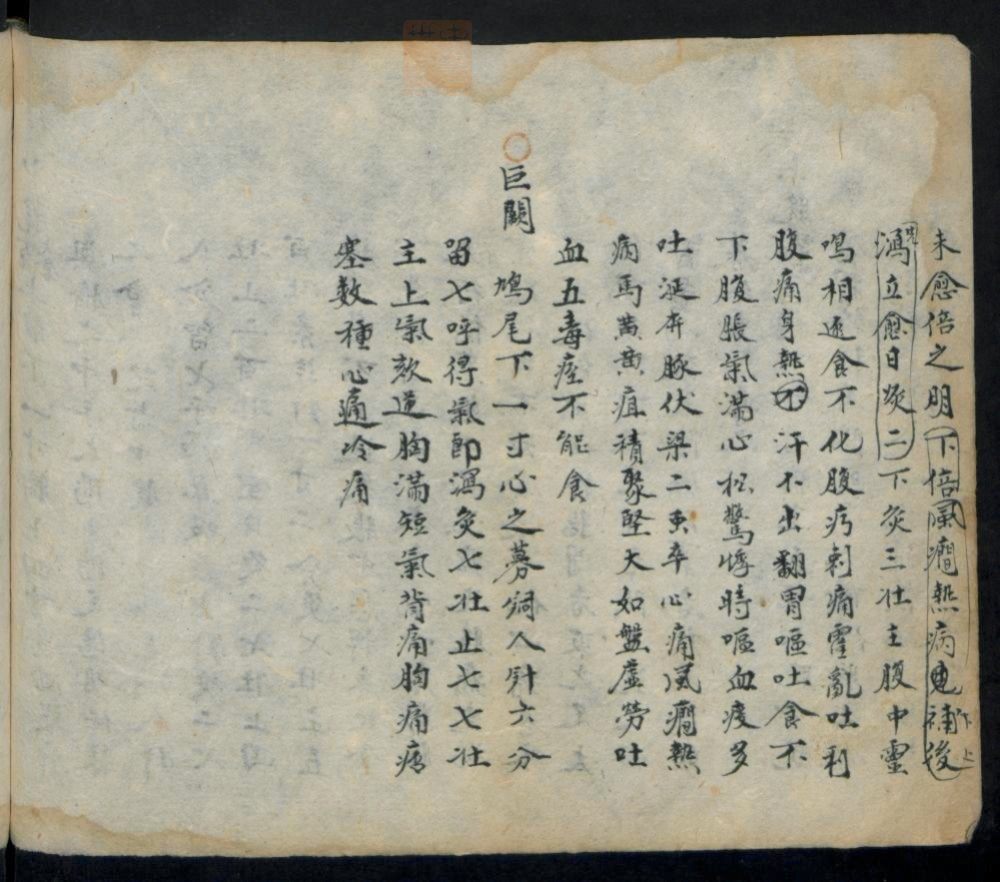 未愈倍之明下倍風癎熱病先補後
瀉立愈日灸二下灸三壮主腹中雷
鳴相逐食不化腹疠刺痛霍亂吐利
腹痛身熱不汗不出翻胃嘔吐食不
下腹脹氣滿心松驚悸時嘔血痰多
吐涎奔豚伏梁二虫卒心痛風癎熱
病馬黄黄疸積聚堅大如盤虛勞吐
血五毒痊不能食
巨闕
鳩尾下一寸心之募銅人針六分
留七呼得氣即瀉灸七壮止七七壮
主上氣欬逆胸滿短氣背痛胸痛痞
塞數種心痛冷痛